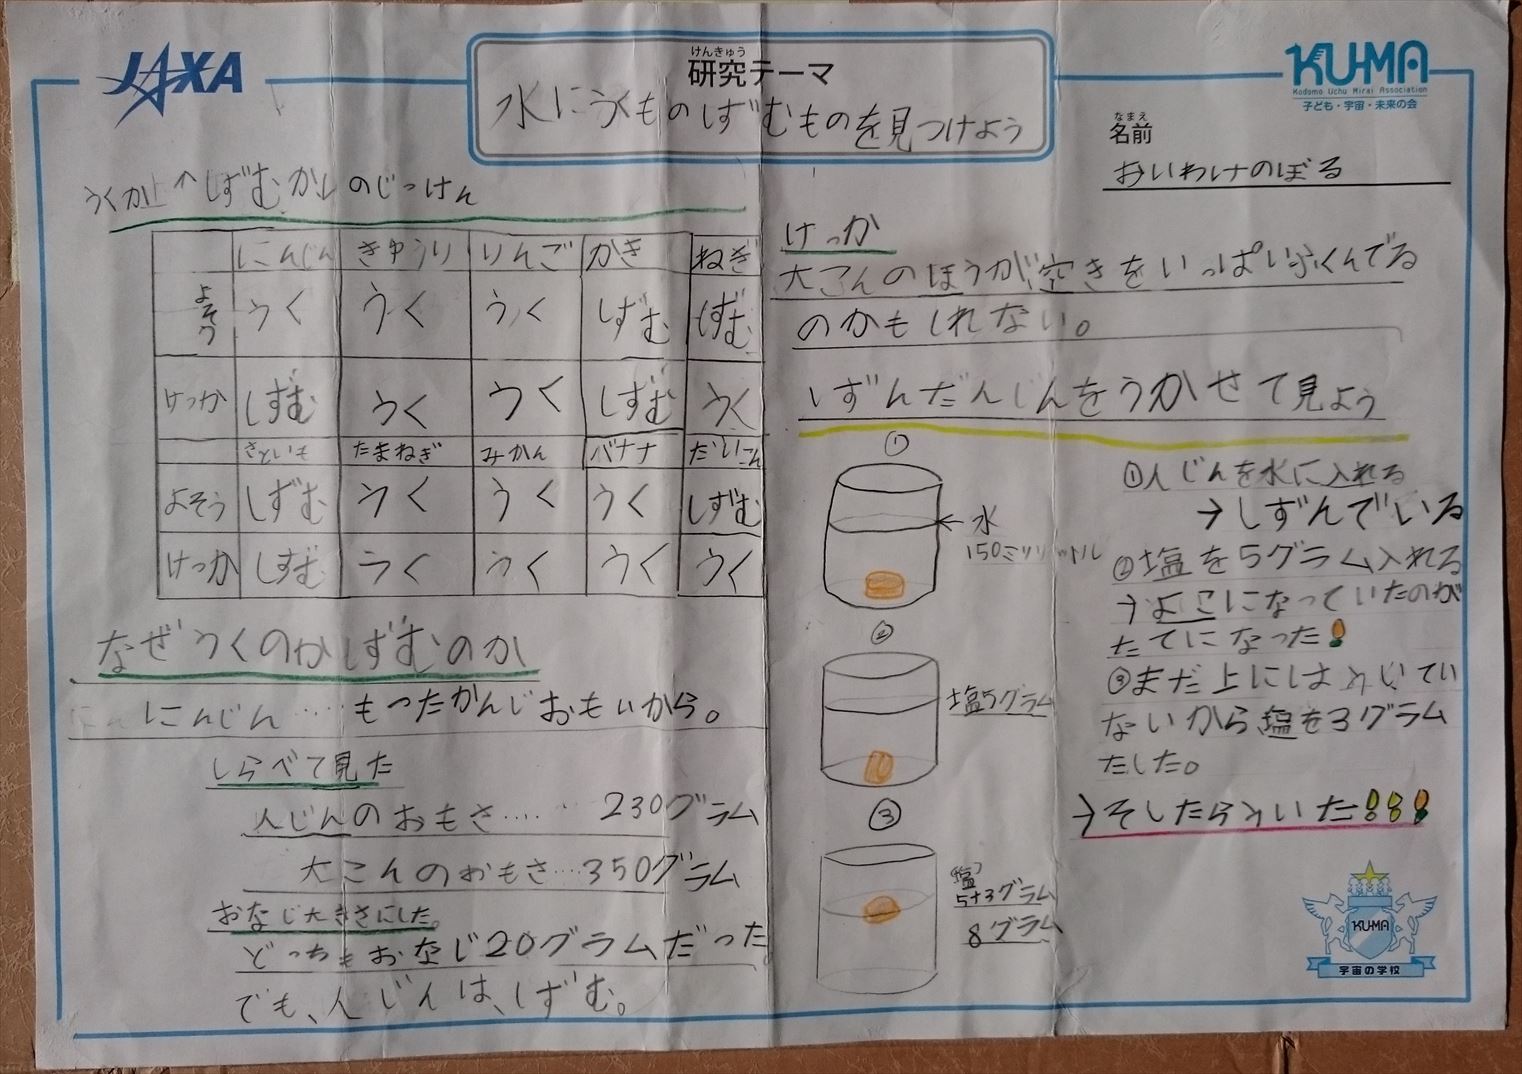 JAXA
けんきゅう
研究テーマ
水にうくものしずむものを見つけよう
KU-MA
Kodomo Uchu Mirai Association
子ども・宇宙・未来の会
なまえ
名前
おいわけのぼる
うくか しずむかのじっけん
にんじん きゅうり りんご かき ねぎ
よそう うく うく うく しずむ しずむ
けっか しずむ うく うく しずむ うく
さといも たまねぎ みかん バナナ だいこん
よそう しずむ うく うく うく しずむ
けっか しずむ うく うく うく うく
なぜうくのかしずむのか
にんじん……もったかんじおもいから。
しらべて見た
人じんのおもさ……230グラム
大こんのおもさ…350グラム
おなじ大きさにした。
どっちもおなじ20グラムだった
でも、人じんは、しずむ。
けっか
大こんのほうが空きをいっぱいふくんでる
のかもしれない。
しずんだんじんをうかせて見よう
①
←水
150ミリリットル
②
塩5グラム
③
塩
5+3グラム
8グラム
①人じんを水に入れる
→しずんでいる
②塩を5グラム入れる
→よこになっていたのが
たてになった!
③まだ上にはういてい
ないから塩を3グラム
たした。
→そしたらういた!!!
KU-MA
宇宙の学校